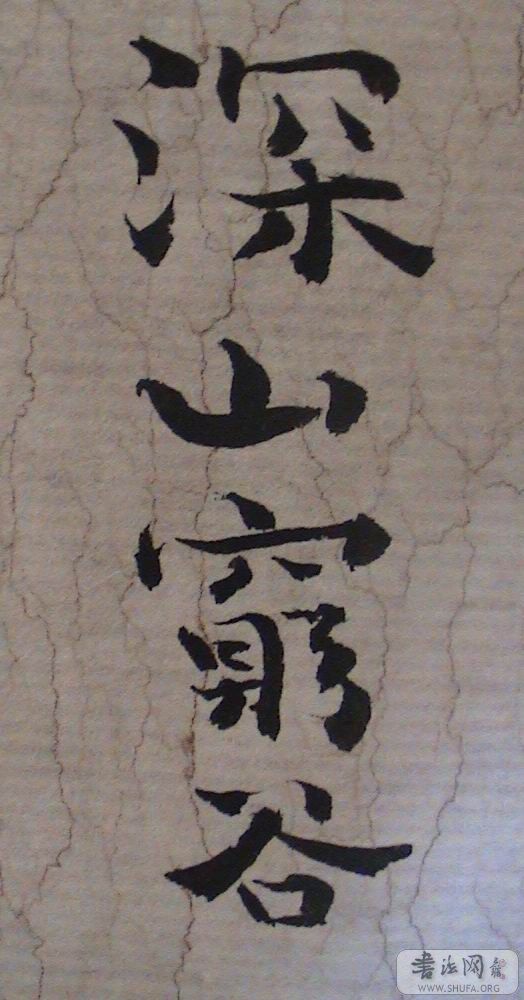 深山窮谷
书法网
WWW.SHUFA.ORG